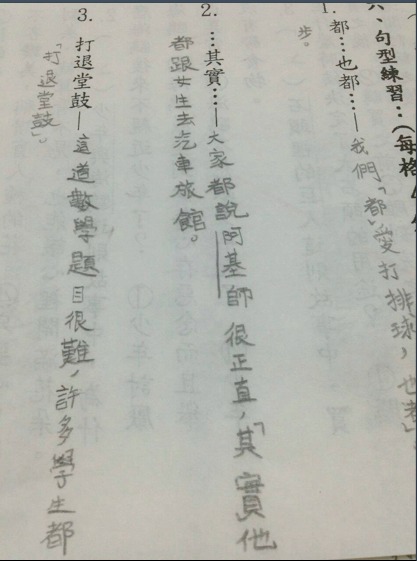 、句型練習：(每格
1. 都…也都…—我們「都」愛打排球，也
步。
2. …其實…—大家都說阿基師很正直，「其實」他
都跟女生去汽車旅館。
3. 打退堂鼓—這道數學題目很難，許多學生都
「打退堂鼓」。